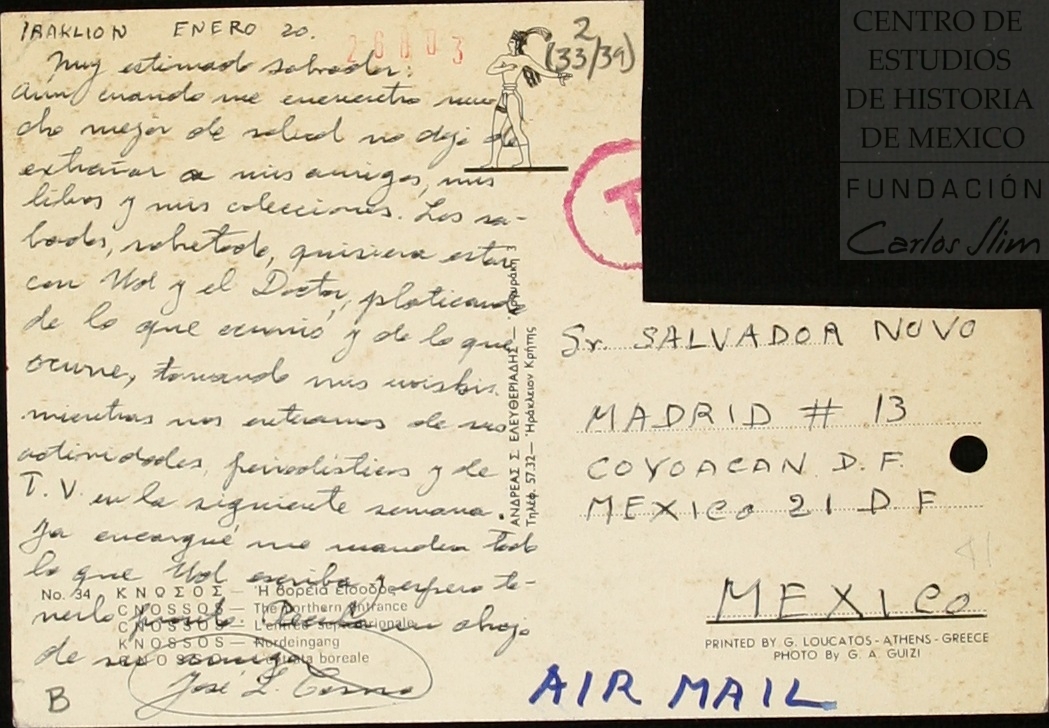 IRAKLION ENERO 20.
26003
2
(33/39)
Muy estimado Salvador:
Aun cuando me encuentro mu-
cho mejor de salud no dejo de
extrañar a mis amigos, mis
libros y mis colecciones. Los sa-
bados, sobretodo, quisiera estar
con Ud y el Doctor, platicando
de lo que ocurrió y de lo que
ocurre, tomando mis wiskis
mientras nos enteramos de sus
actividades, periodísticas y de
T.V. en la siguiente semana.
Ya encargué me manden todo
lo que Ud escriba y espero te-
nerlo pronto. Reciba un abrazo
de su amigo
José L.
B
No. 34 ΚΝΩΣΟΣ — Ἡ βορεία εἴσοδος
CNOSSOS — The Northern entrance
CNOSSOS — L'entrée septentrionale
KNOSSOS — Nordeingang
CNOSSO — L'entrata boreale
ΑΝΔΡΕΑΣ Σ. ΕΛΕΥΘΕΡΙΑΔΗΣ —
Τηλέφ. 57.32 — Ἡράκλειον Κρήτης
T
Sr. SALVADOR NOVO
MADRID # 13
COYOACAN D.F.
MEXICO 21 D F
MEXICO
PRINTED BY G. LOUCATOS - ATHENS - GREECE
PHOTO By G. A. GUIZI
AIR MAIL
CENTRO DE
ESTUDIOS
DE HISTORIA
DE MEXICO
FUNDACIÓN
Carlos Slim